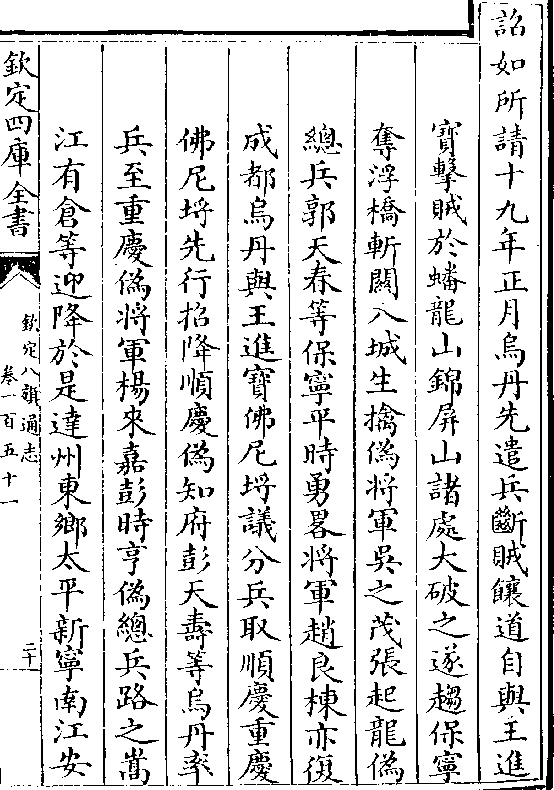 詔如所請十九年正月烏丹先遣兵斷賊饟道自與王進
寳擊賊於蟠龍山錦屏山諸處大破之遂趨保寧
奪浮橋斬關入城生擒偽將軍吳之茂張起龍偽
總兵郭天春等保寧平時勇畧將軍趙良棟亦復
成都烏丹與王進寳佛尼埒議分兵取順慶重慶
佛尼埒先行招降順慶偽知府彭天壽等烏丹率
兵至重慶偽將軍楊來嘉彭時亨偽總兵路之嵩
江有倉等迎降於是達州東鄉太平新寧南江安
欽定四庫全書
欽定八旗通志
卷一百五十一
二十